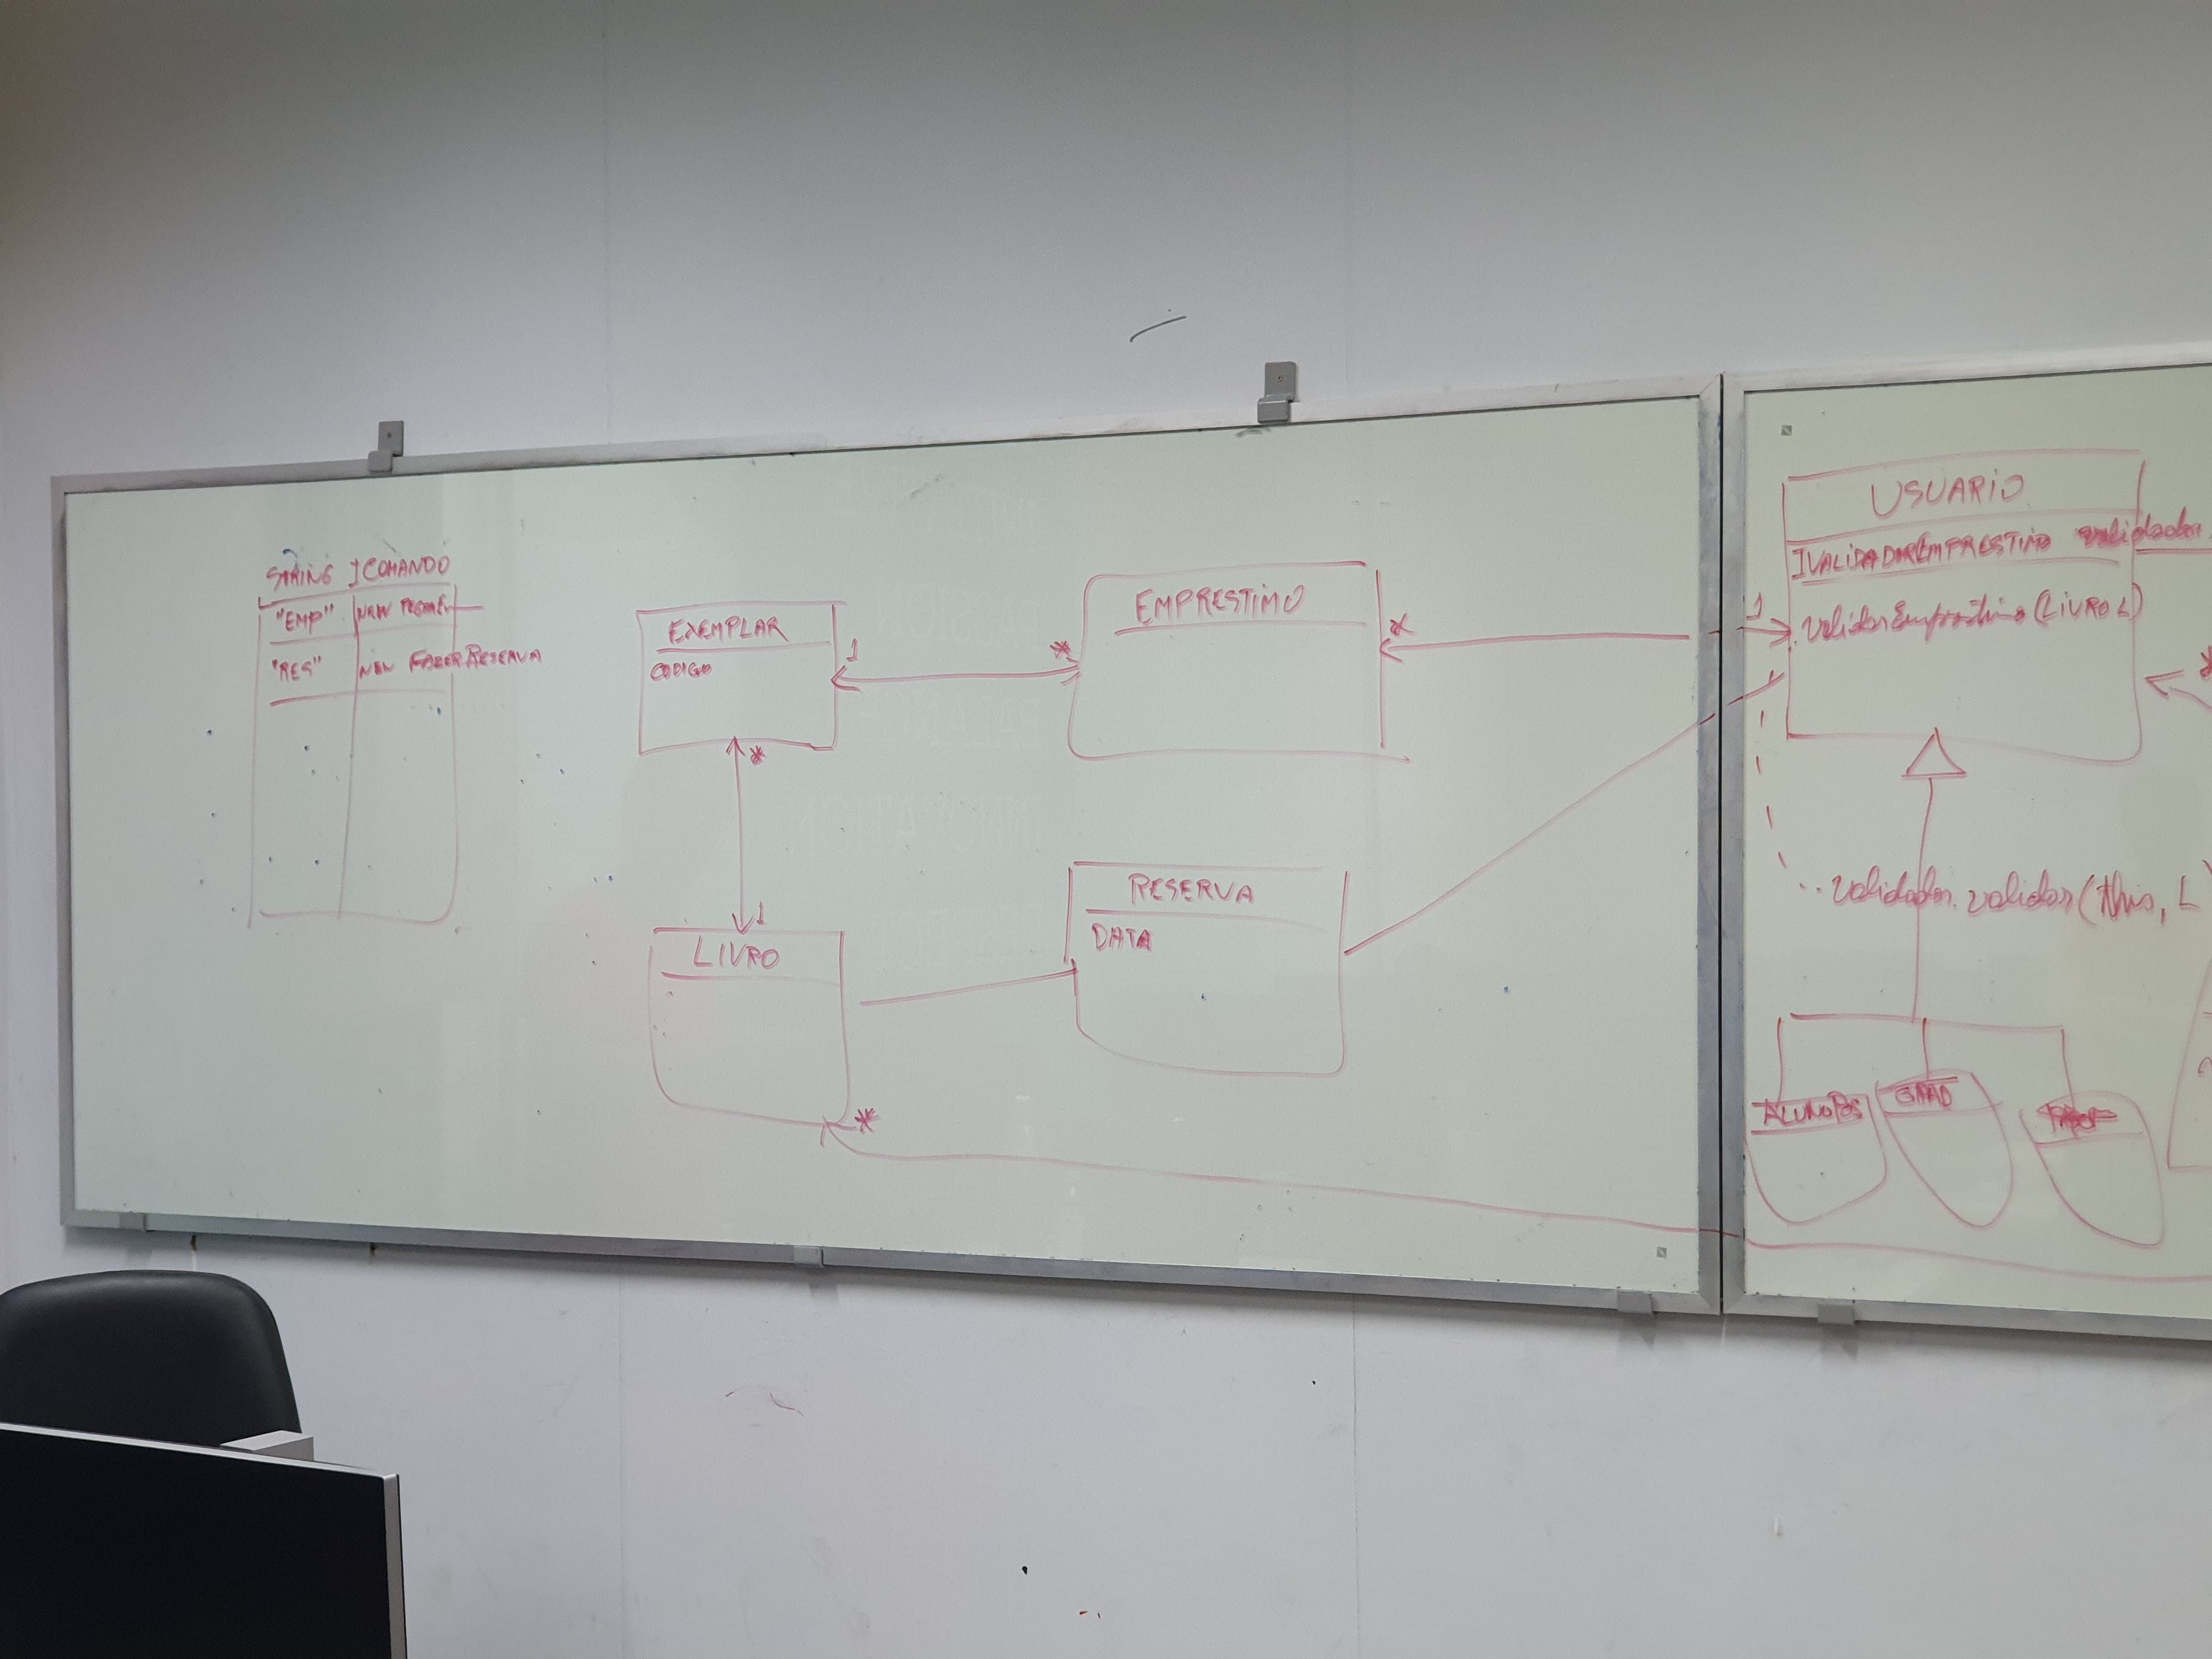 STRING ICOMANDO
"EMP" NEW
"RES" NEW FAZERRESERVA
EXEMPLAR
CODIGO
1
*
EMPRESTIMO
*
1
USUARIO
IVALIDADOREMPRESTIMO validador
.validarEmprestimo(LIVRO L)
*
*
1
LIVRO
*
RESERVA
DATA
validador.validar(this, L
ALUNOPOS
GRAD
PROF